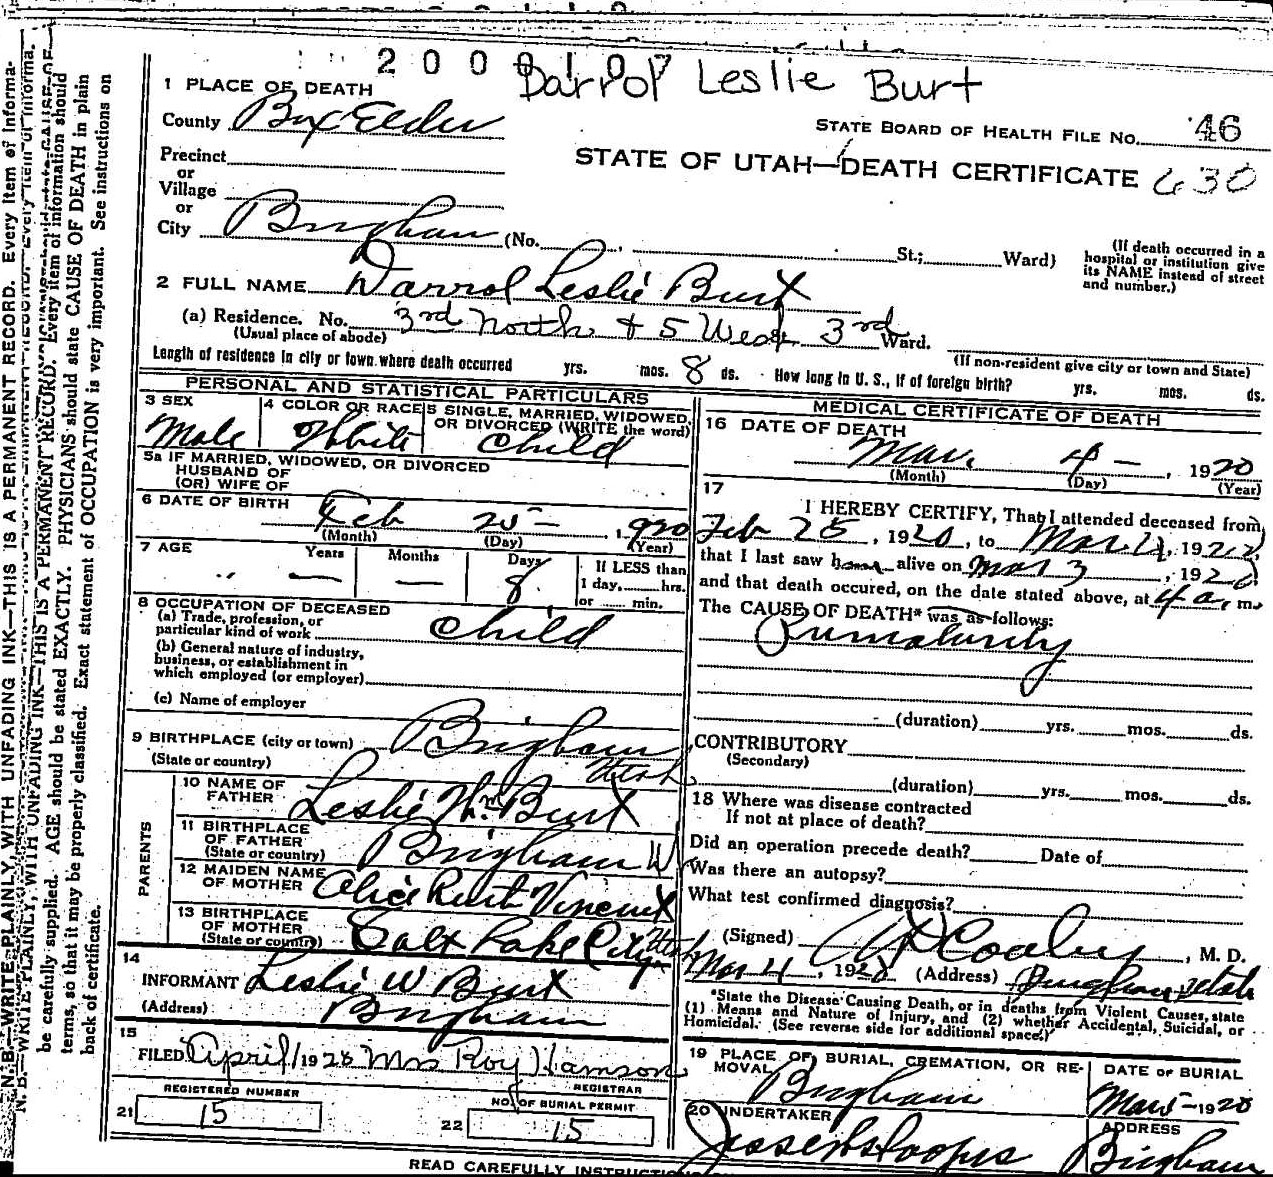 2000107 Darrol Leslie Burt
1 PLACE OF DEATH
County Box Elder
STATE BOARD OF HEALTH FILE No. 46
Precinct
or
STATE OF UTAH—DEATH CERTIFICATE 630
Village
or
City Brigham (No. St.; Ward)
(If death occurred in a
hospital or institution give
its NAME instead of street
and number.)
2 FULL NAME Darrol Leslie Burt
(a) Residence. No. 3rd North & 5 West 3rd Ward.
(Usual place of abode)
(If non-resident give city or town and State)
Length of residence in city or town where death occurred yrs. mos. 8 ds. How long in U. S., if of foreign birth? yrs. mos. ds.
PERSONAL AND STATISTICAL PARTICULARS
3 SEX Male
4 COLOR OR RACE White
5 SINGLE, MARRIED, WIDOWED,
OR DIVORCED (WRITE the word)
Child
5a IF MARRIED, WIDOWED, OR DIVORCED
HUSBAND OF
(OR) WIFE OF
6 DATE OF BIRTH Feb 25 — 1920
(Month) (Day) (Year)
7 AGE Years Months Days
If LESS than
1 day, hrs.
or min.
— — 8
8 OCCUPATION OF DECEASED
(a) Trade, profession, or
particular kind of work Child
(b) General nature of industry,
business, or establishment in
which employed (or employer)
(c) Name of employer
9 BIRTHPLACE (city or town) Brigham
(State or country) Utah
PARENTS
10 NAME OF
FATHER Leslie Wm Burt
11 BIRTHPLACE
OF FATHER
(State or country) Brigham
12 MAIDEN NAME
OF MOTHER Alice Ruth Vincent
13 BIRTHPLACE
OF MOTHER
(State or country) Salt Lake City Utah
14
INFORMANT Leslie W Burt
(Address) Brigham
15
FILED April 1 1920 Mrs Roy Hamson
REGISTRAR
REGISTERED NUMBER
21 15
NO. OF BURIAL PERMIT
22 15
MEDICAL CERTIFICATE OF DEATH
16 DATE OF DEATH
Mar. 4 — , 1920
(Month) (Day) (Year)
17
I HEREBY CERTIFY, That I attended deceased from
Feb 25, 1920, to Mar 4, 1920,
that I last saw him alive on Mar 3, 1920
and that death occured, on the date stated above, at 4 a. m.
The CAUSE OF DEATH* was as follows:
Prematurity
(duration) yrs. mos. ds.
CONTRIBUTORY
(Secondary)
(duration) yrs. mos. ds.
18 Where was disease contracted
If not at place of death?
Did an operation precede death? Date of
Was there an autopsy?
What test confirmed diagnosis?
(Signed) , M. D.
Mar 4, 1920 (Address) Brigham Utah
*State the Disease Causing Death, or in deaths from Violent Causes, state
(1) Means and Nature of Injury, and (2) whether Accidental, Suicidal, or
Homicidal. (See reverse side for additional space.)
19 PLACE OF BURIAL, CREMATION, OR RE-
MOVAL Brigham
DATE OF BURIAL
Mar 5 — 1920
20 UNDERTAKER
ADDRESS
Brigham
READ CAREFULLY INSTRUCTIONS
N. B.—WRITE PLAINLY, WITH UNFADING INK—THIS IS A PERMANENT RECORD. Every item of informa-
be carefully supplied. AGE should be stated EXACTLY. PHYSICIANS should state CAUSE OF DEATH in plain
terms, so that it may be properly classified. Exact statement of OCCUPATION is very important. See instructions on
back of certificate.